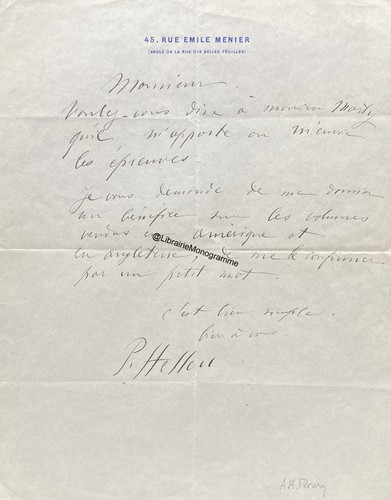 45, RUE EMILE MENIER
(ANGLE DE LA RUE DES BELLES FEUILLES)
Monsieur.
Voulez-vous dire à monsieur Marty
qu'il m'apporte ou m'envoie
les épreuves.
je vous demande de me donner
un bénéfice sur les volumes
vendus en amérique et
en angleterre, de me le confirmer
par un petit mot.
@LibrairieMonogramme
c'est bien simple.
bien à vous
P. Helleu